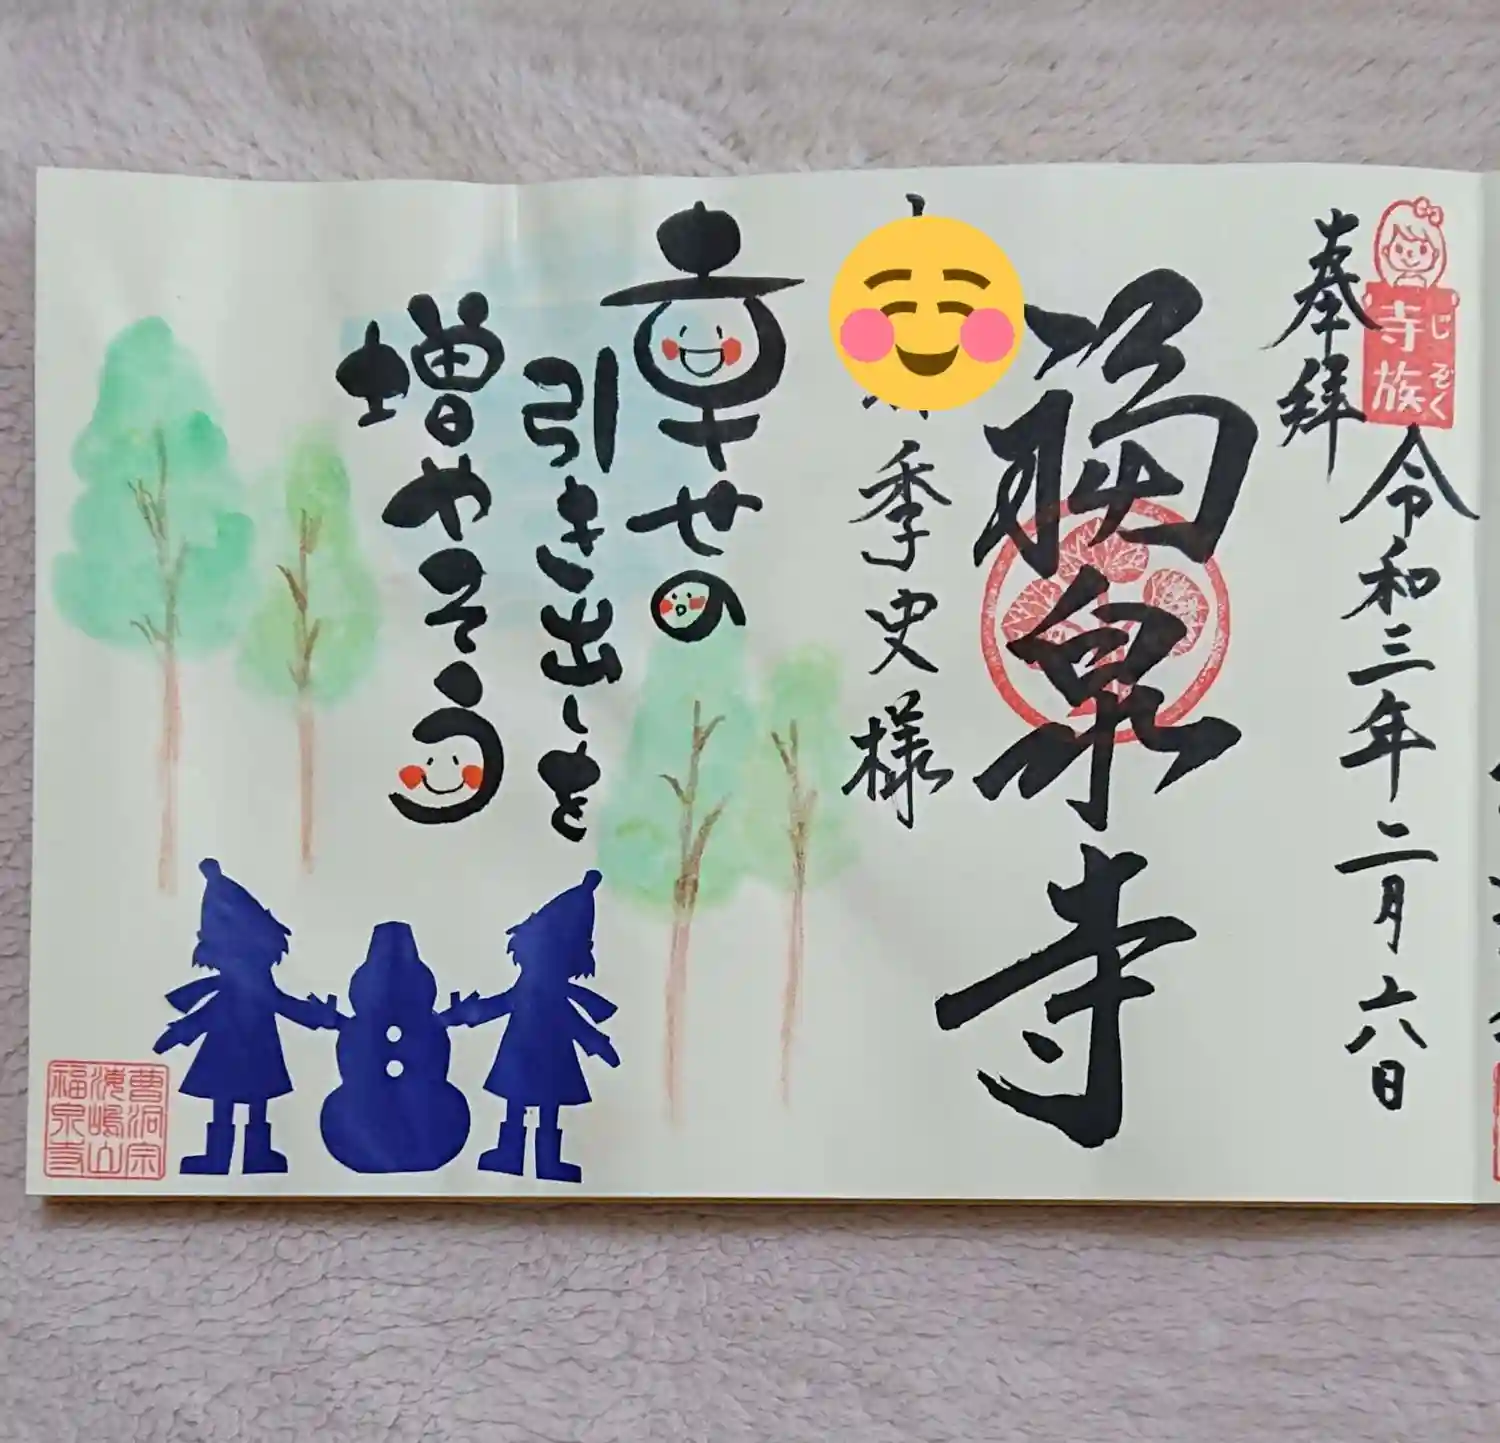 奉拝
じぞく
寺族
令和三年二月六日
福泉寺
季史様
幸せの
引き出しを
増やそう
曹洞宗
福泉寺